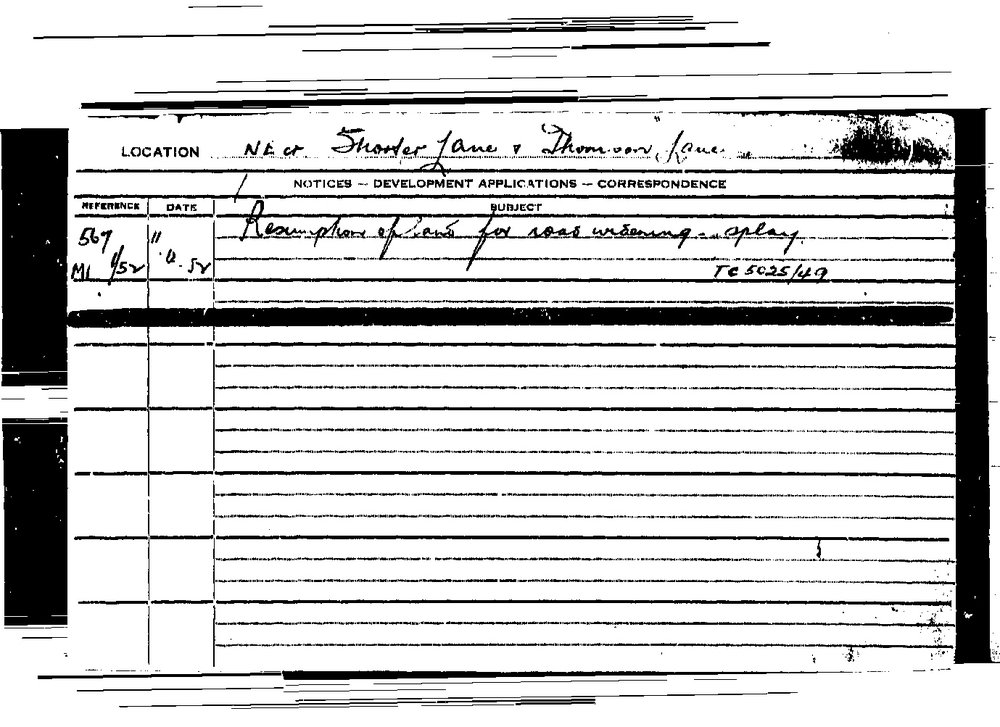 LOCATION NE Cr Shorter Lane & Thomson Lane
NOTICES — DEVELOPMENT APPLICATIONS — CORRESPONDENCE
REFERENCE DATE SUBJECT
567 11 Resumption of land for road widening - splay.
M1 1/52 11. 52 TC 5025/49